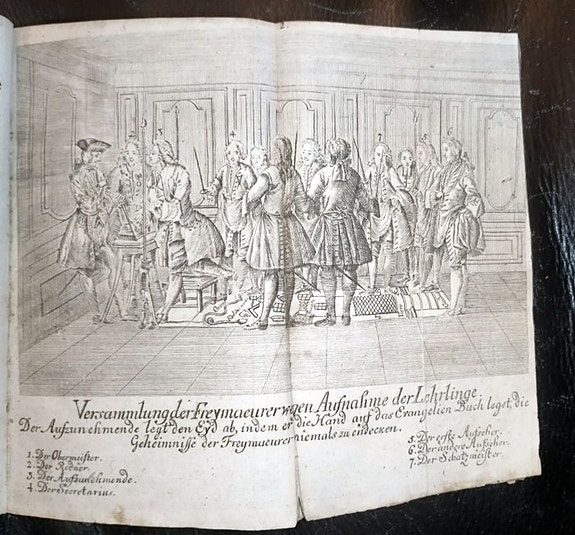 Versammlung der Freymaeurer wegen Aufnahme der Lehrlinge
Der Aufzunehmende legt den Eyd ab, indem er die Hand auf das Evangelien Buch leget, die
Geheimnisse der Freymaeurer niemals zu endecken.
1. Der Obermeister.
2. Der Redner.
3. Der Aufzunehmende.
4. Der Secretarius.
5. Der erste Aufseher.
6. Der andere Aufseher.
7. Der Schatzmeister.